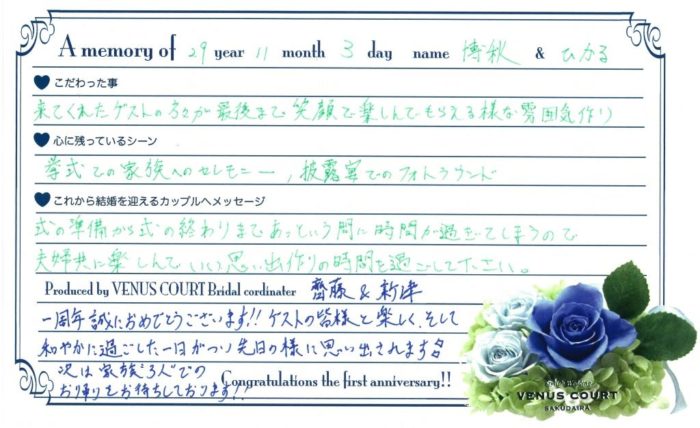 A memory of 29 year 11 month 3 day name 博秋 & ひかる
こだわった事
来てくれたゲストの方々が最後まで笑顔で楽しんでもらえる様な雰囲気作り
心に残っているシーン
挙式での家族へのセレモニー, 披露宴でのフォトラウンド
これから結婚を迎えるカップルへメッセージ
式の準備から式の終わりまであっという間に時間が過ぎてしまうので
夫婦共に楽しんでいい思い出作りの時間を過ごして下さい。
Produced by VENUS COURT Bridal cordinater 齋藤 & 新津
一周年誠におめでとうございます!! ゲストの皆様と楽しく、そして
和やかに過ごした一日がつい先日の様に思い出されます
次は家族3人での
お帰りをお待ちしております!!
Congratulations the first anniversary!!
VENUS COURT
SAKUDAIRA